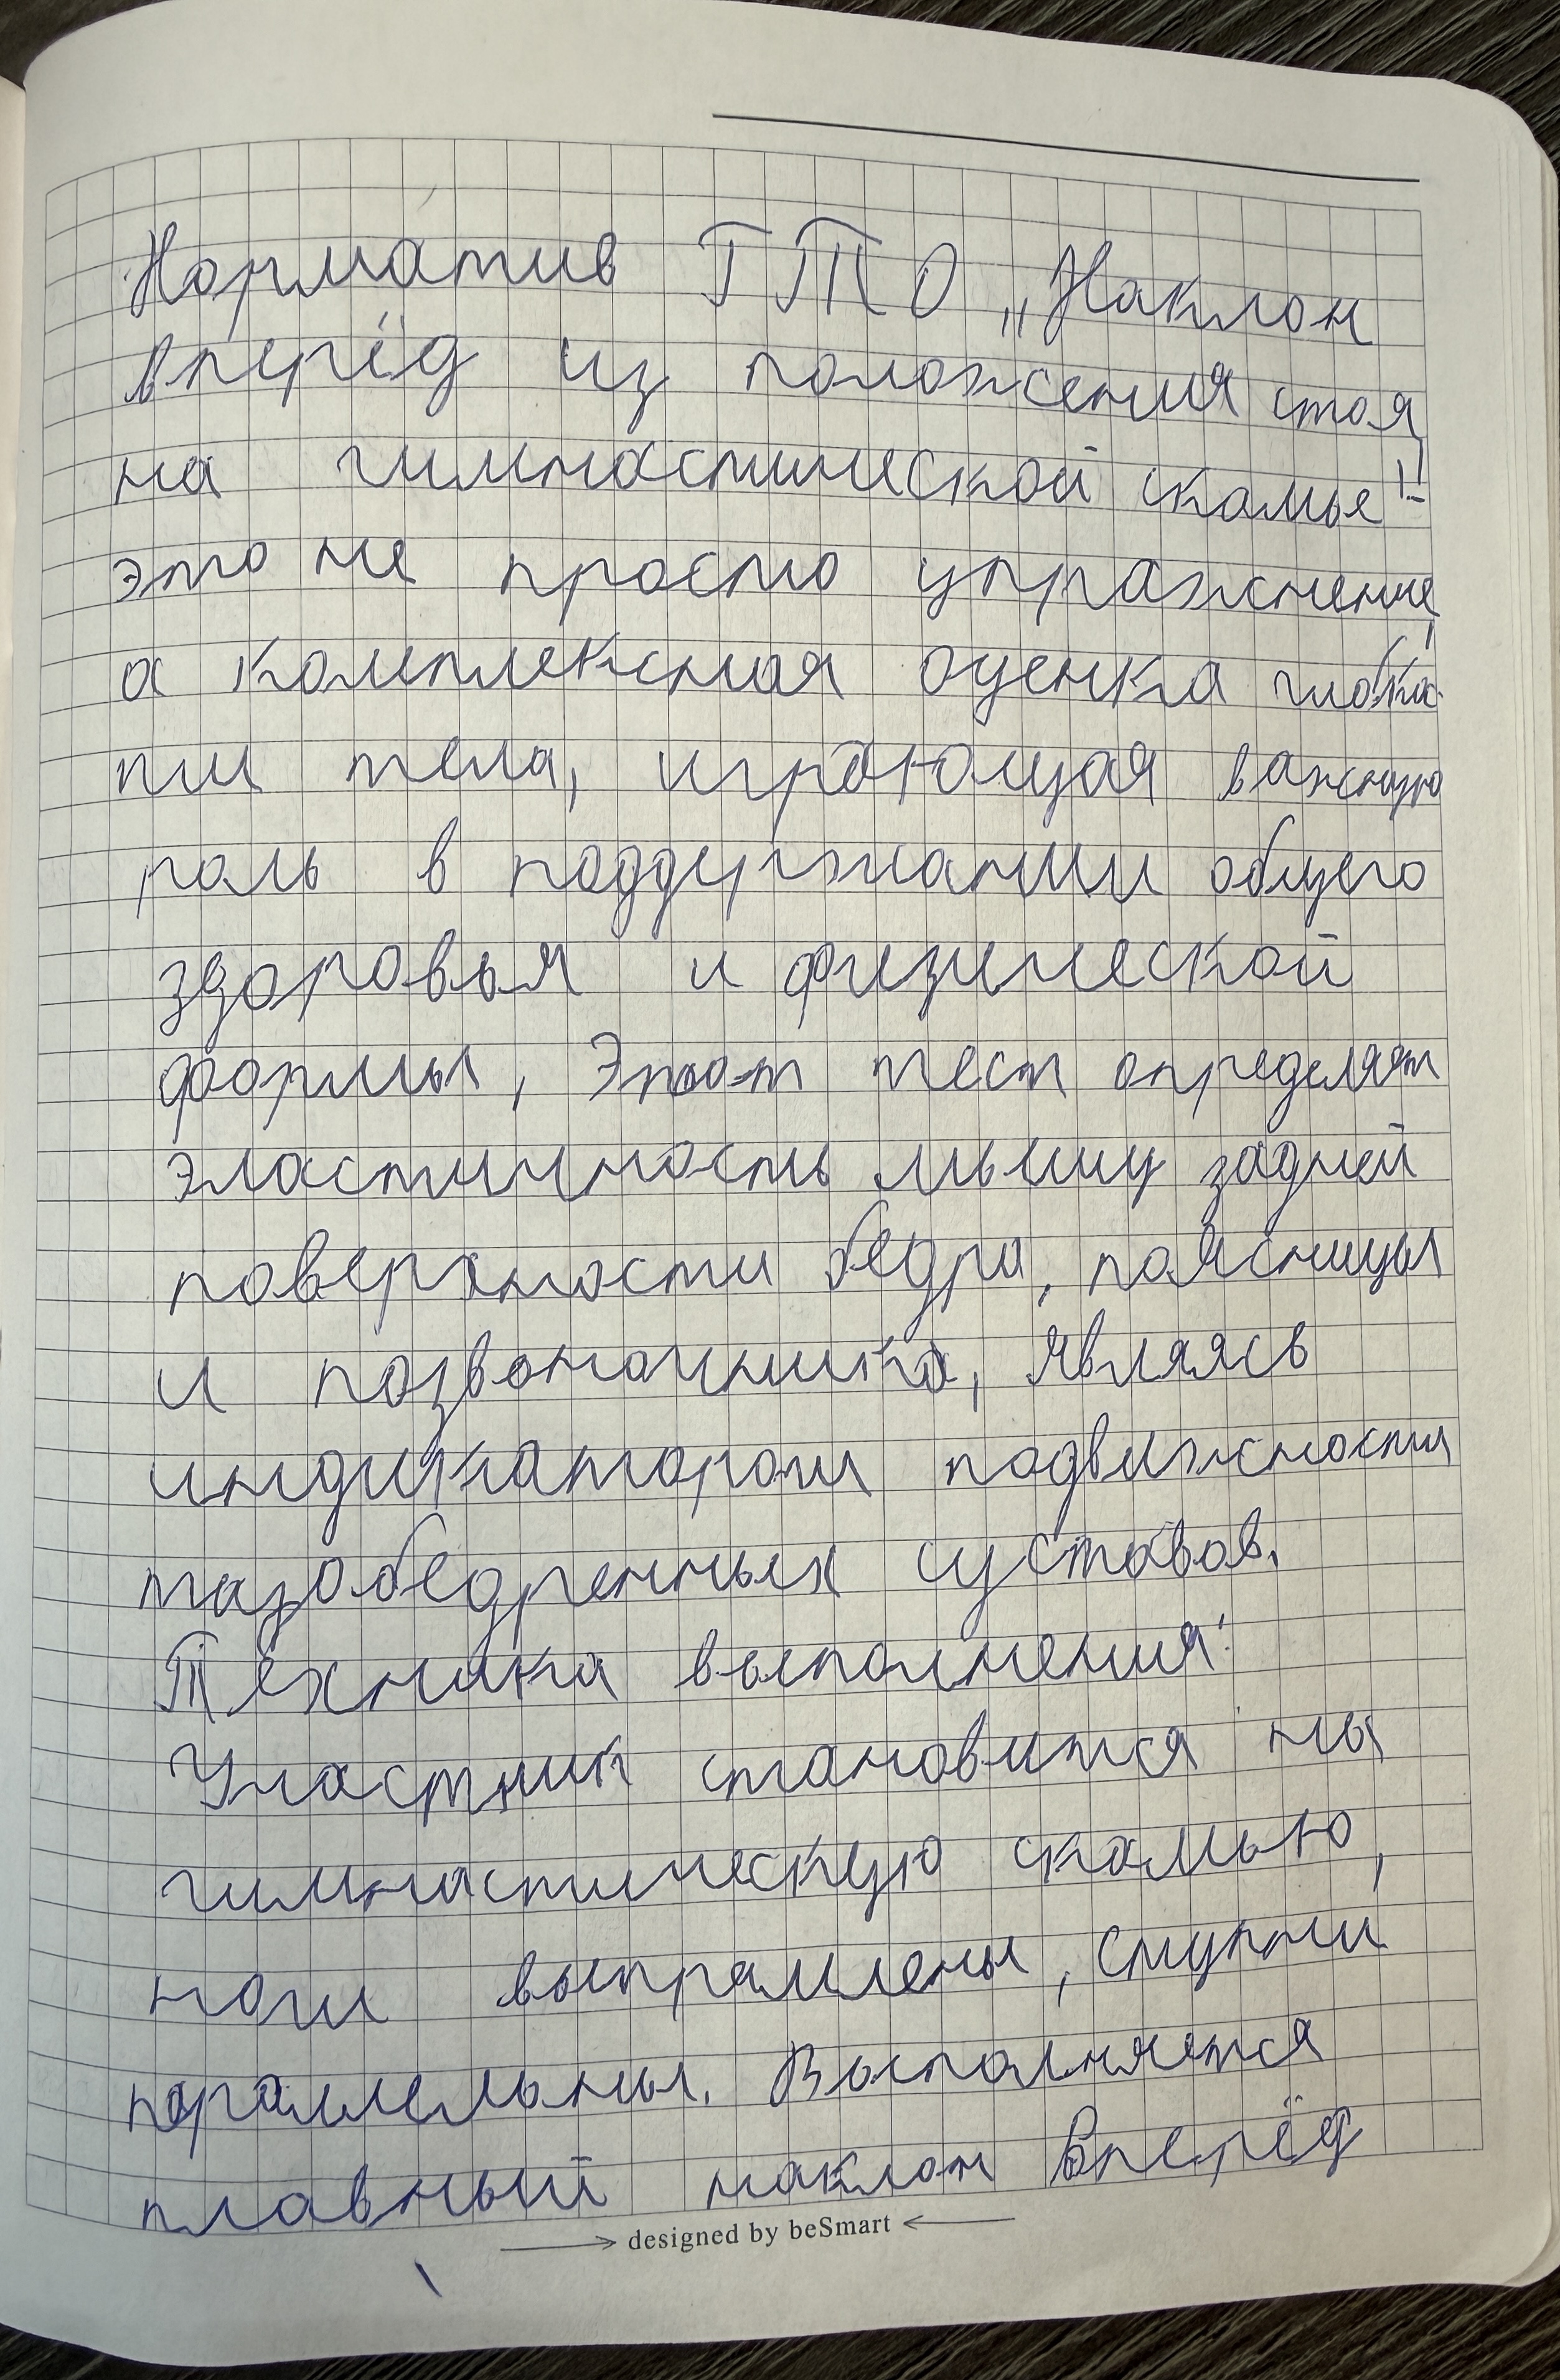 Норматив ГТО „Наклон
вперёд из положения стоя
на гимнастической скамье" -
это не просто упражнение,
а комплексная оценка гибкос-
ти тела, играющая важную
роль в поддержании общего
здоровья и физической
формы, Этот тест определяет
эластичность мышц задней
поверхности бедра, поясницы
и позвоночника, являясь
индикатором подвижности
тазобедренных суставов.
Техника выполнения:
Участник становится на
гимнастическую скамью,
ноги выпрямлены, ступни
параллельны. Выполняется
плавный наклон вперёд
designed by beSmart